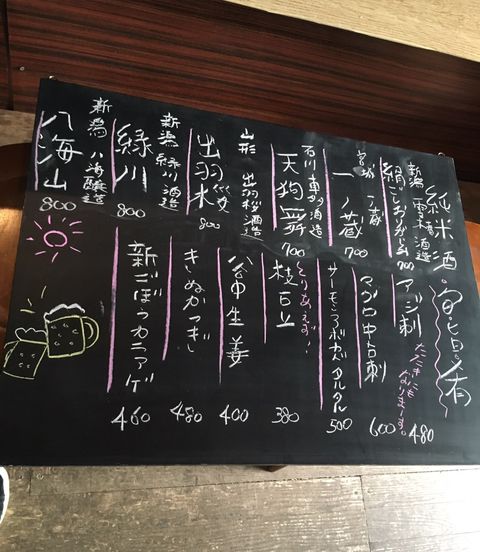 純米酒
新潟 雪椿酒造
絹ごしおりがらみ
700
宮城 一ノ蔵
一ノ蔵
700
石川 車多酒造
天狗舞
700
山形 出羽桜酒造
出羽桜
800
新潟 緑川酒造
緑川
800
新潟 八海醸造
八海山
800
旬活有
アジ刺
たたきにもなりまーす。
480
マグロ中台刺
600
サーモンアボカドタルタル
500
とりあえず!
枝豆
380
谷中生姜
400
きぬかつぎ
480
新ごぼうカラアゲ
460